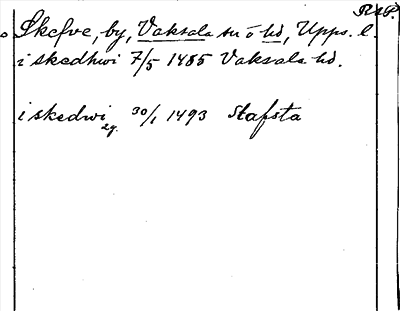 RAP.
Skefve, by, Vaksala sn o hd, Upps. l.
i skedhwi 7/5 1485 Vaksala hd.
i skedwi 30/1 1493 Stafsta
eg.